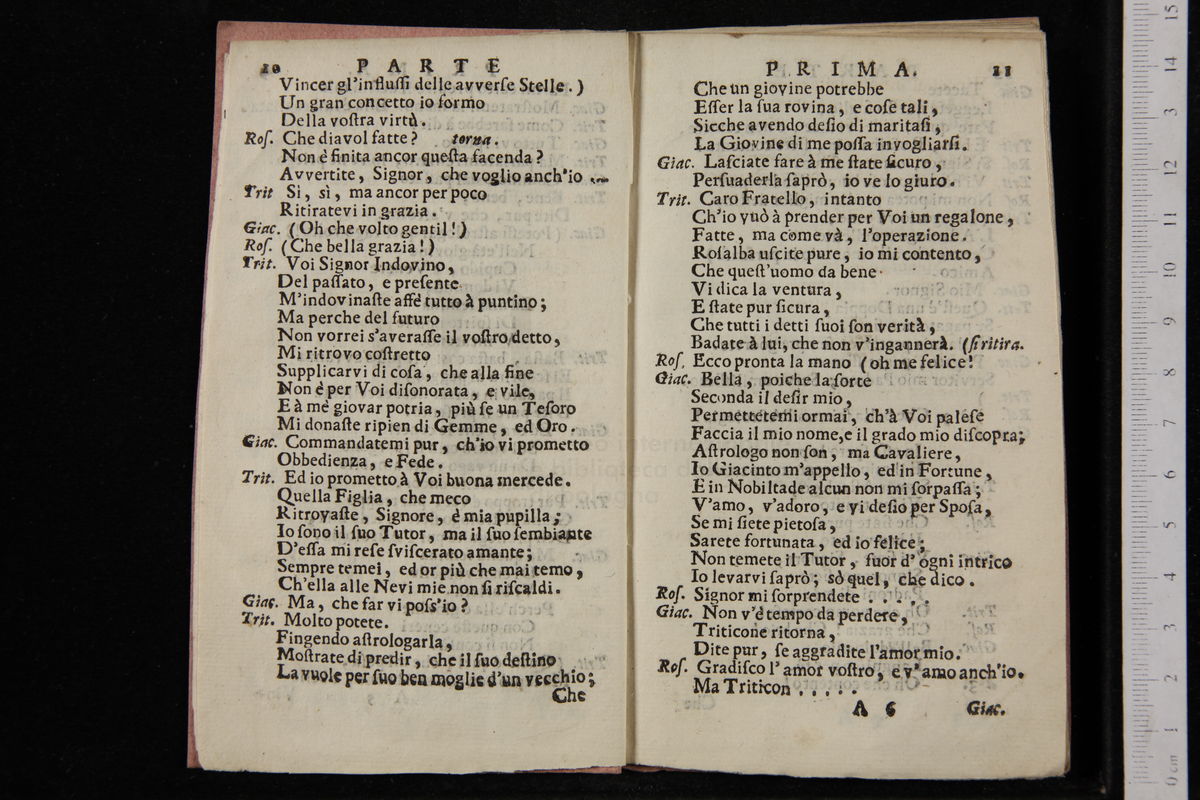 10 PARTE
Vincer gl'influſſi delle avverſe Stelle.)
Un gran concetto io formo
Della voſtra virtù.
Roſ. Che diavol fatte? torna.
Non è finita ancor queſta facenda?
Avvertite, Signor, che voglio anch'io ...
Trit Si, sì, ma ancor per poco
Ritiratevi in grazia.
Giac. (Oh che volto gentil!)
Roſ. (Che bella grazia!)
Trit. Voi Signor Indovino,
Del paſſato, e preſente
M'indovinaſte affè tutto à puntino;
Ma perche del futuro
Non vorrei s'averaſſe il voſtro detto,
Mi ritrovo coſtretto
Supplicarvi di coſa, che alla fine
Non è per Voi diſonorata, e vile,
E à me giovar potria, più ſe un Teſoro
Mi donaſte ripien di Gemme, ed Oro.
Giac. Commandatemi pur, ch'io vi prometto
Obbedienza, e Fede.
Trit. Ed io prometto à Voi buona mercede.
Quella Figlia, che meco
Ritrovaſte, Signore, è mia pupilla;
Io ſono il ſuo Tutor, ma il ſuo ſembiante
D'eſſa mi reſe ſviſcerato amante;
Sempre temei, ed or più che mai temo,
Ch'ella alle Nevi mie non ſi riſcaldi.
Giac. Ma, che far vi poſs'io?
Trit. Molto potete.
Fingendo aſtrologarla,
Moſtrate di predir, che il ſuo deſtino
La vuole per ſuo ben moglie d'un vecchio;
Che
PRIMA. 11
Che un giovine potrebbe
Eſſer la ſua rovina, e coſe tali,
Sicche avendo deſio di maritaſi,
La Giovine di me poſſa invogliarſi.
Giac. Laſciate fare à me ſtate ſicuro,
Perſuaderla ſaprò, io ve lo giuro.
Trit. Caro Fratello, intanto
Ch'io vuò à prender per Voi un regalone,
Fatte, ma come và, l'operazione.
Roſalba uſcite pure, io mi contento,
Che queſt'uomo da bene
Vi dica la ventura,
E ſtate pur ſicura,
Che tutti i detti ſuoi ſon verità,
Badate à lui, che non v'ingannerà. (ſi ritira.
Roſ. Ecco pronta la mano (oh me felice!
Giac. Bella, poiche la ſorte
Seconda il deſir mio,
Permettetemi ormai, ch'à Voi paleſe
Faccia il mio nome, e il grado mio diſcopra;
Aſtrologo non ſon, ma Cavaliere,
Io Giacinto m'appello, ed in Fortune,
E in Nobiltade alcun non mi ſorpaſſa;
V'amo, v'adoro, e vi deſio per Spoſa,
Se mi ſiete pietoſa,
Sarete fortunata, ed io felice;
Non temete il Tutor, fuor d'ogni intrico
Io levarvi ſaprò; sò quel, che dico.
Roſ. Signor mi ſorprendete ....
Giac. Non v'è tempo da perdere,
Triticone ritorna,
Dite pur, ſe aggradite l'amor mio.
Roſ. Gradiſco l'amor voſtro, e v'amo anch'io.
Ma Triticon .....
A 6 Giac.
0 cm 1 2 3 4 5 6 7 8 9 10 11 12 13 14 15